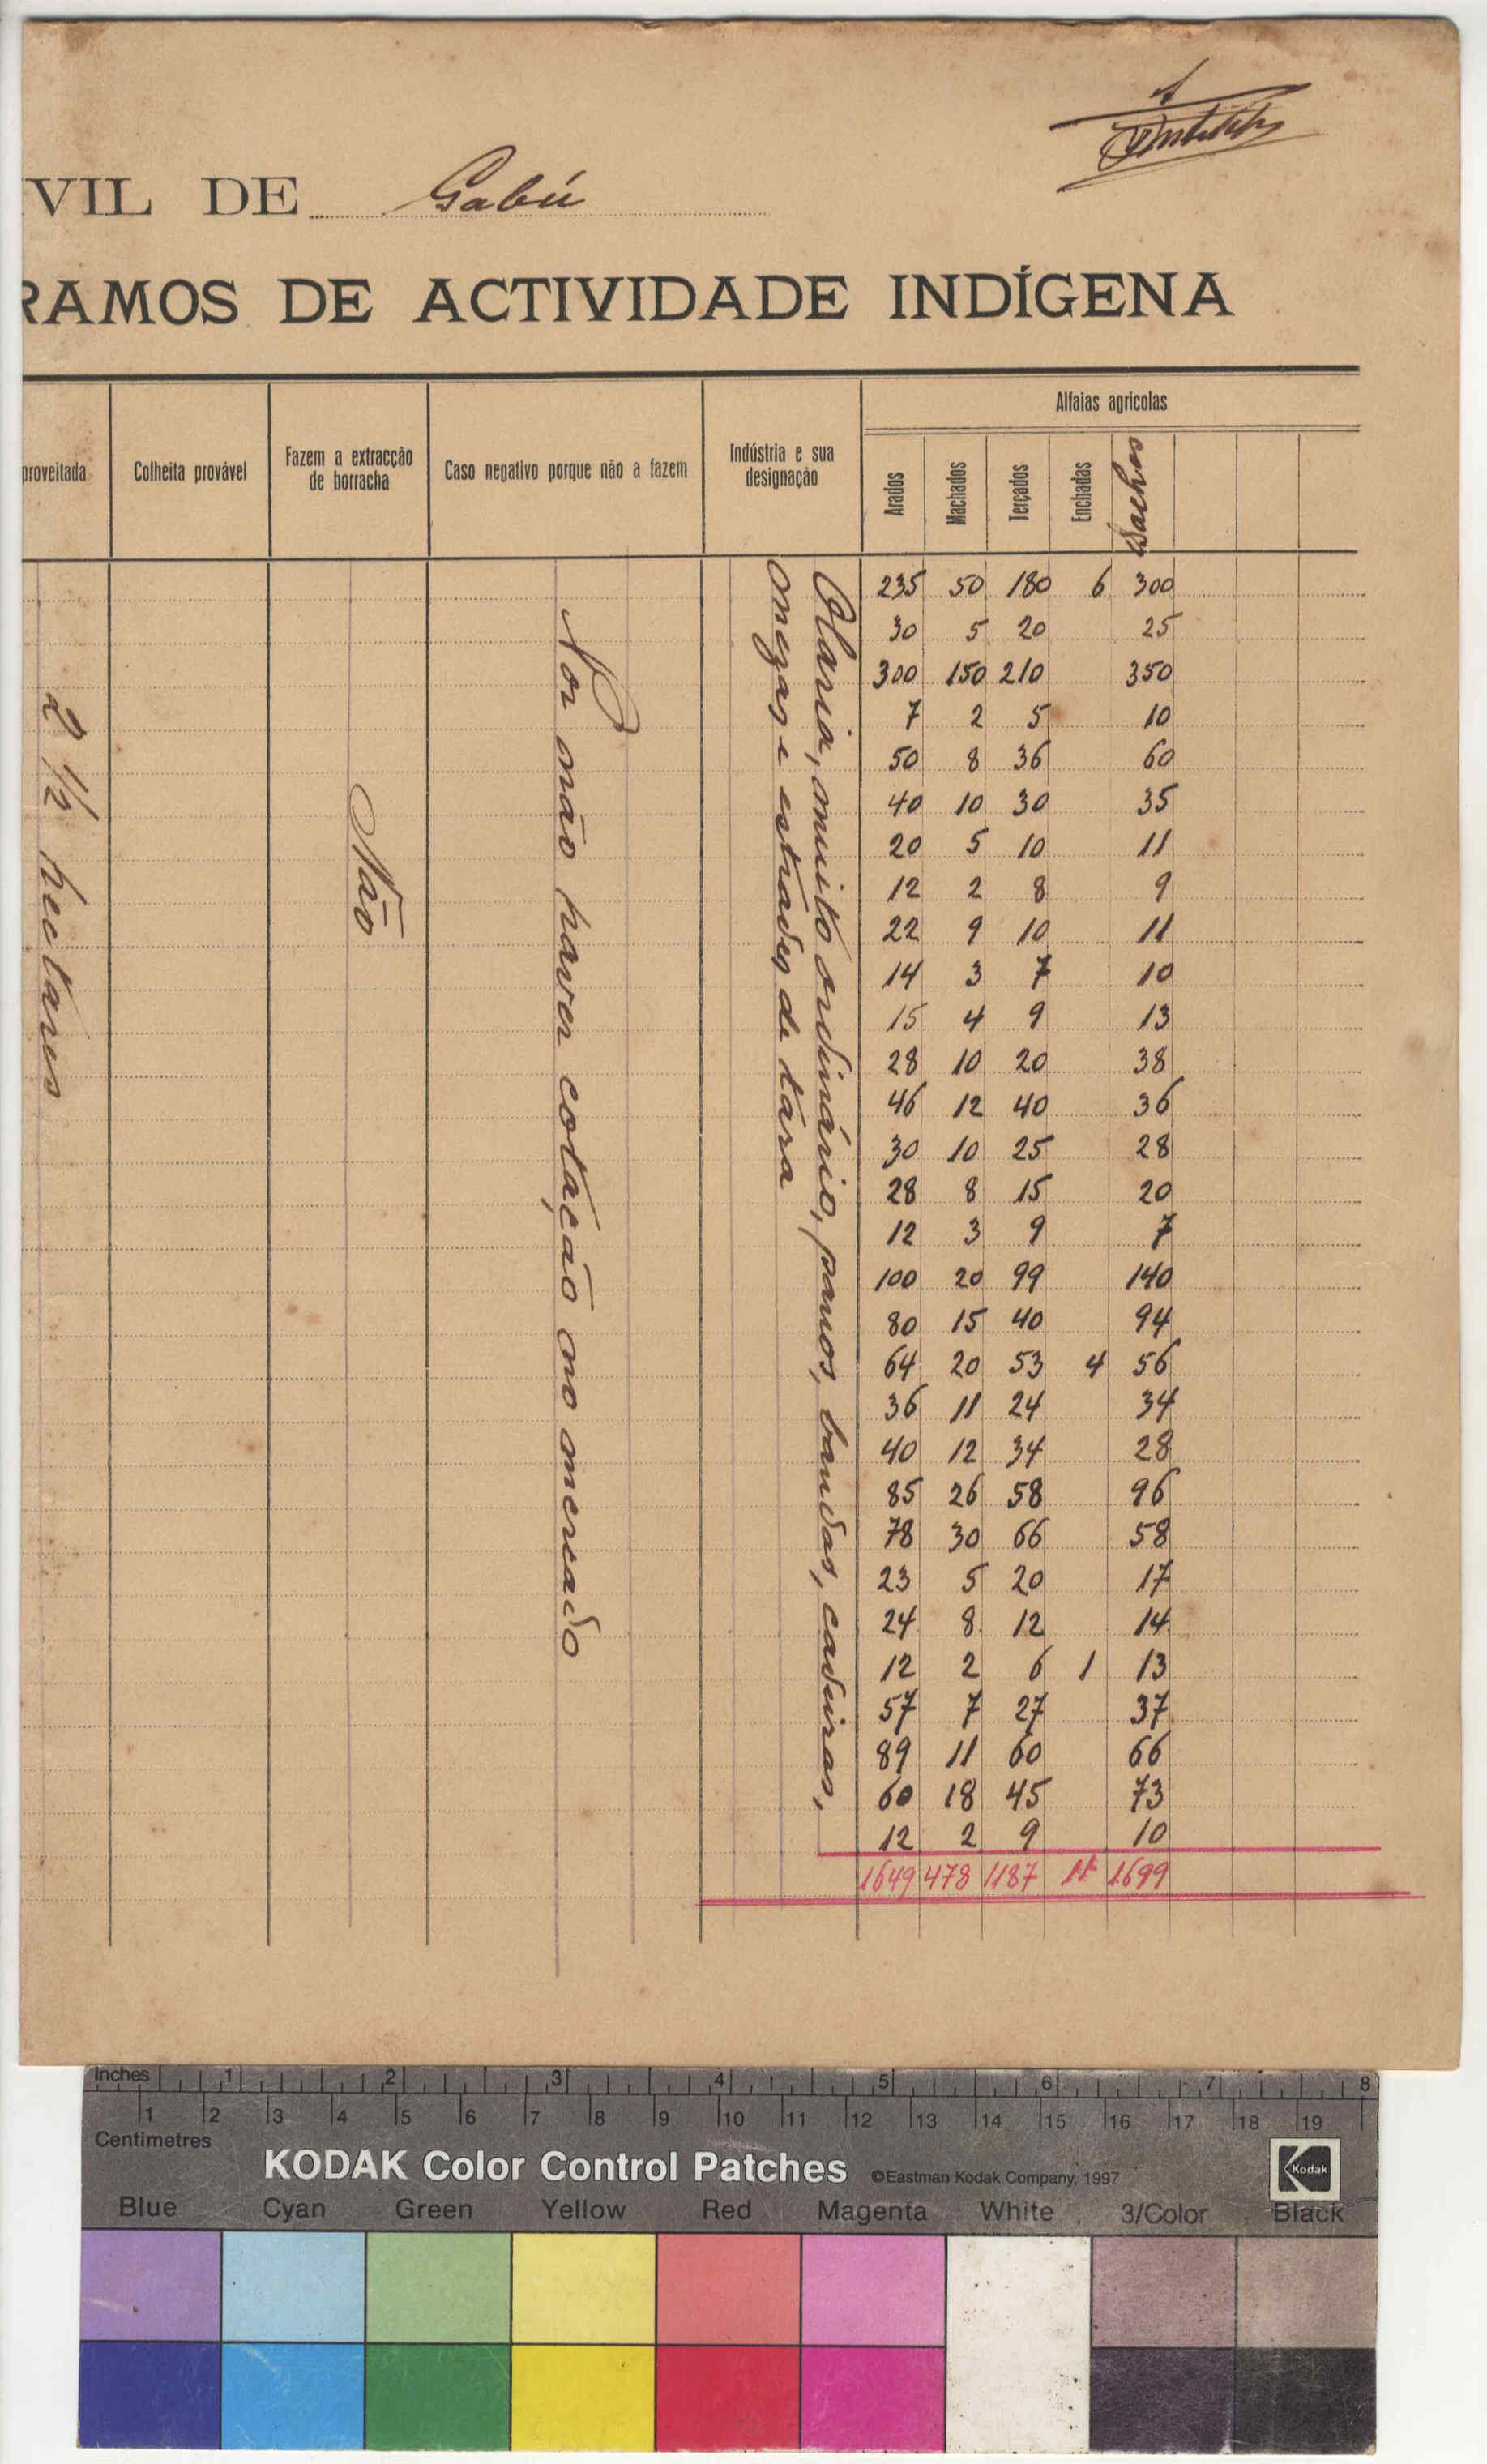 VIL DE Gabú
RAMOS DE ACTIVIDADE INDÍGENA
proveitada
Colheita provável
Fazem a extracção
de borracha
Caso negativo porque não a fazem
Indústria e sua
designação
Alfaias agrícolas
Arados Machados Terçados Enchadas Sachos
2 1/2 hectares
Não
Por não haver cotação no mercado
Olaria, muito ordinário, panos, bandas, cadeiras,
mezas e estrados de tára
235 50 180 6 300
30 5 20 25
300 150 210 350
7 2 5 10
50 8 36 60
40 10 30 35
20 5 10 11
12 2 8 9
22 9 10 11
14 3 7 10
15 4 9 13
28 10 20 38
46 12 40 36
30 10 25 28
28 8 15 20
12 3 9 7
100 20 99 140
80 15 40 94
64 20 53 4 56
36 11 24 34
40 12 34 28
85 26 58 96
78 30 66 58
23 5 20 17
24 8 12 14
12 2 6 1 13
57 7 27 37
89 11 60 66
60 18 45 73
12 2 9 10
1649 478 1187 11 1699
Inches 1 2 3 4 5 6 7 8
1 2 3 4 5 6 7 8 9 10 11 12 13 14 15 16 17 18 19
Centimetres
KODAK Color Control Patches ©Eastman Kodak Company, 1997 Kodak
Blue Cyan Green Yellow Red Magenta White 3/Color Black